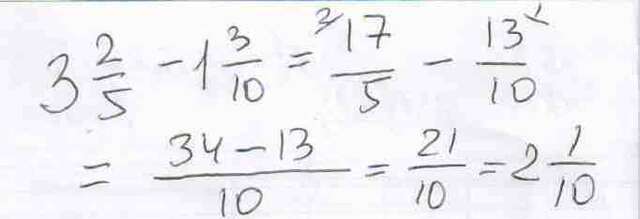 3 2/5 - 1 3/10 = ²17/5 - 13¹/10
= 34-13/10 = 21/10 = 2 1/10